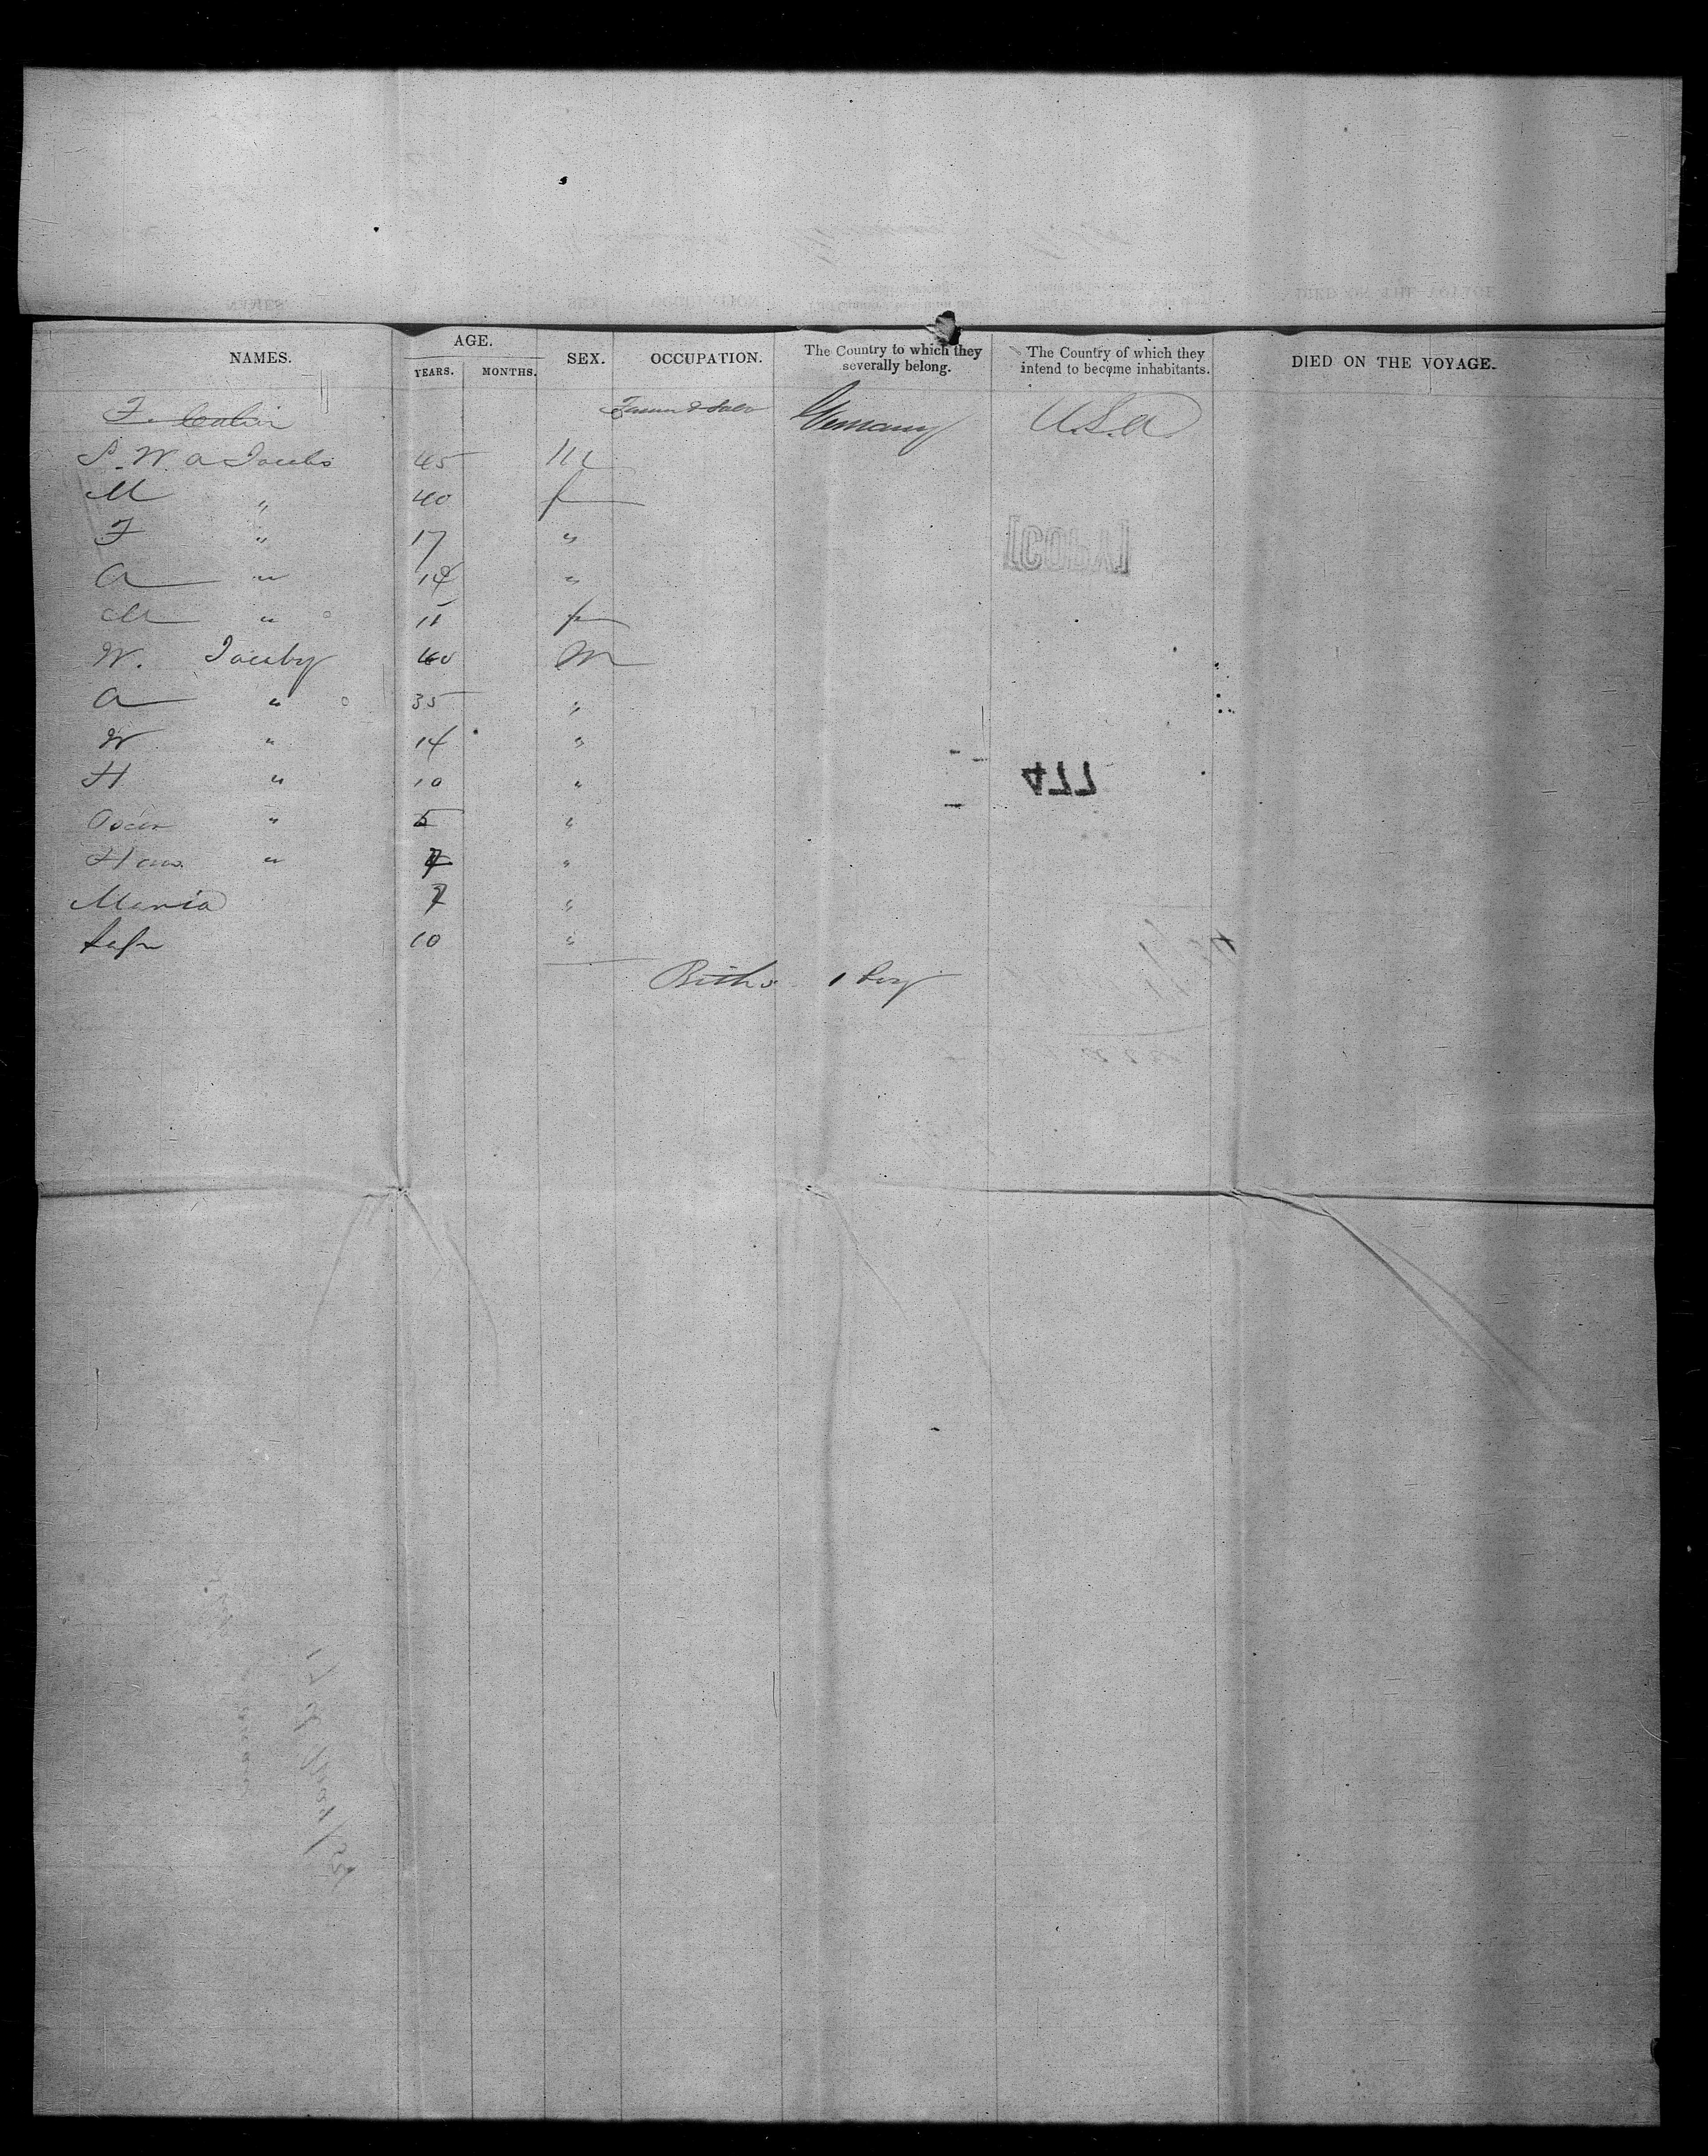 NAMES. AGE. YEARS. MONTHS. SEX. OCCUPATION. The Country to which they severally belong. The Country of which they intend to become inhabitants. DIED ON THE VOYAGE.
F. Germany U.S.A
S. W. A Jacobs 45 M
M " 40 f
F " 17 "
A " 14 "
M " 11 f
W. Jacoby 40 M
A " 35 "
W " 14 "
H " 10 "
Oscar " 5 "
Hans " 4 "
Maria 7 "
10 "
Births 1 boy
[COPY]
477